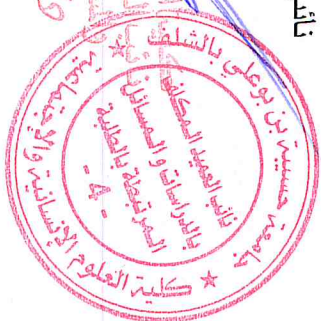 جامعة حسيبة بن بوعلي بالشلف
كلية العلوم الإنسانية والاجتماعية
نائب العميد المكلف
بالدراسات والمسائل
المرتبطة بالطلبة
- 4 -